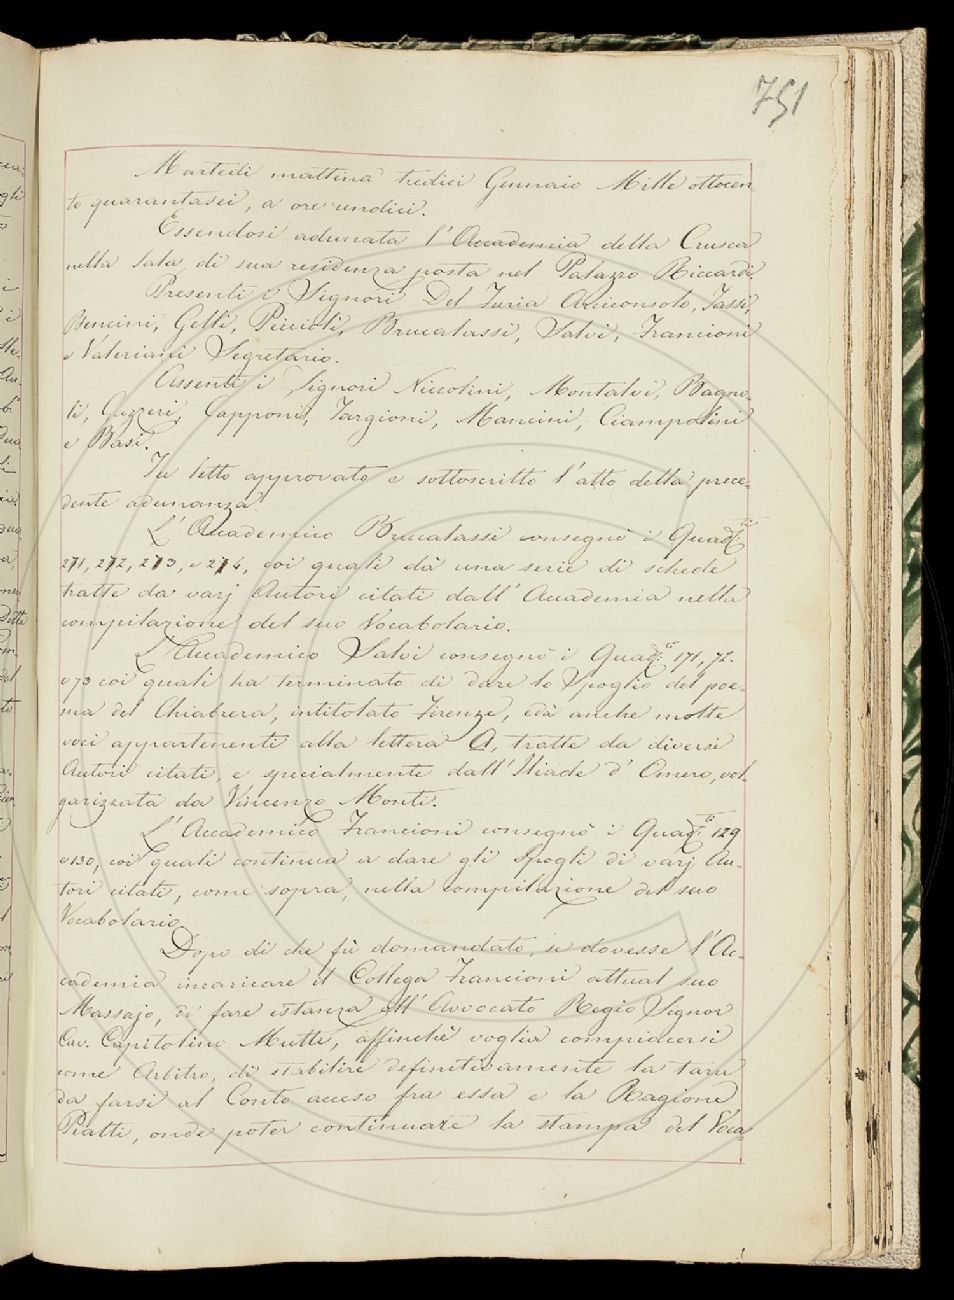 751
Martedì mattina tredici Gennaio Mille ottocen
to quarantasei, a ore undici.
Essendosi adunata l'Accademia della Crusca
nella Sala di sua residenza posta nel Palazzo Riccardi
Presenti i Signori Del Furia Arciconsolo, Tassi,
Bencini, Gelli, Piccioli, Brucalassi, Salvi, Francioni
e Valeriani Segretario.
Assenti i Signori Niccolini, Montalvi, Bagno-
li, Guzzeri, Capponi, Targioni, Mancini, Ciampolini
e Basi.
Fu letto approvato e sottoscritto l'atto della prece-
dente adunanza.
L'Accademico Brucalassi consegnò i Quad.ci
271, 272, 273, e 274, coi quali dà una serie di schede
tratte da varj Autori citati dall'Accademia nella
compilazione del suo Vocabolario.
L'Accademico Salvi consegnò i Quad. 171, 72.
e 73 coi quali ha terminato di dare lo Spoglio del poe-
ma del Chiabrera, intitolato Firenze, e dà anche molte
voci appartenenti alla lettera A, tratte da diversi
Autori citati, e specialmente dall'Iliade d'Omero, vol-
garizzata da Vincenzo Monti.
L'Accademico Francioni consegnò i Quad. 129
e 130, coi quali continua a dare gli Spogli di varj Au-
tori citati, come sopra, nella compilazione del suo
Vocabolario
Dopo di che fù domandato, se dovesse l'Ac-
cademia incaricare il Collega Francioni attual suo
Massajo, di fare istanza all'Avvocato Regio Signor
Cav. Capitolino Mutti, affinchè voglia compiacersi
come Arbitro, di stabilire definitivamente la tara
da farsi al Conto acceso fra essa e la Ragione
Piatti, onde poter continuare la stampa del Voca-